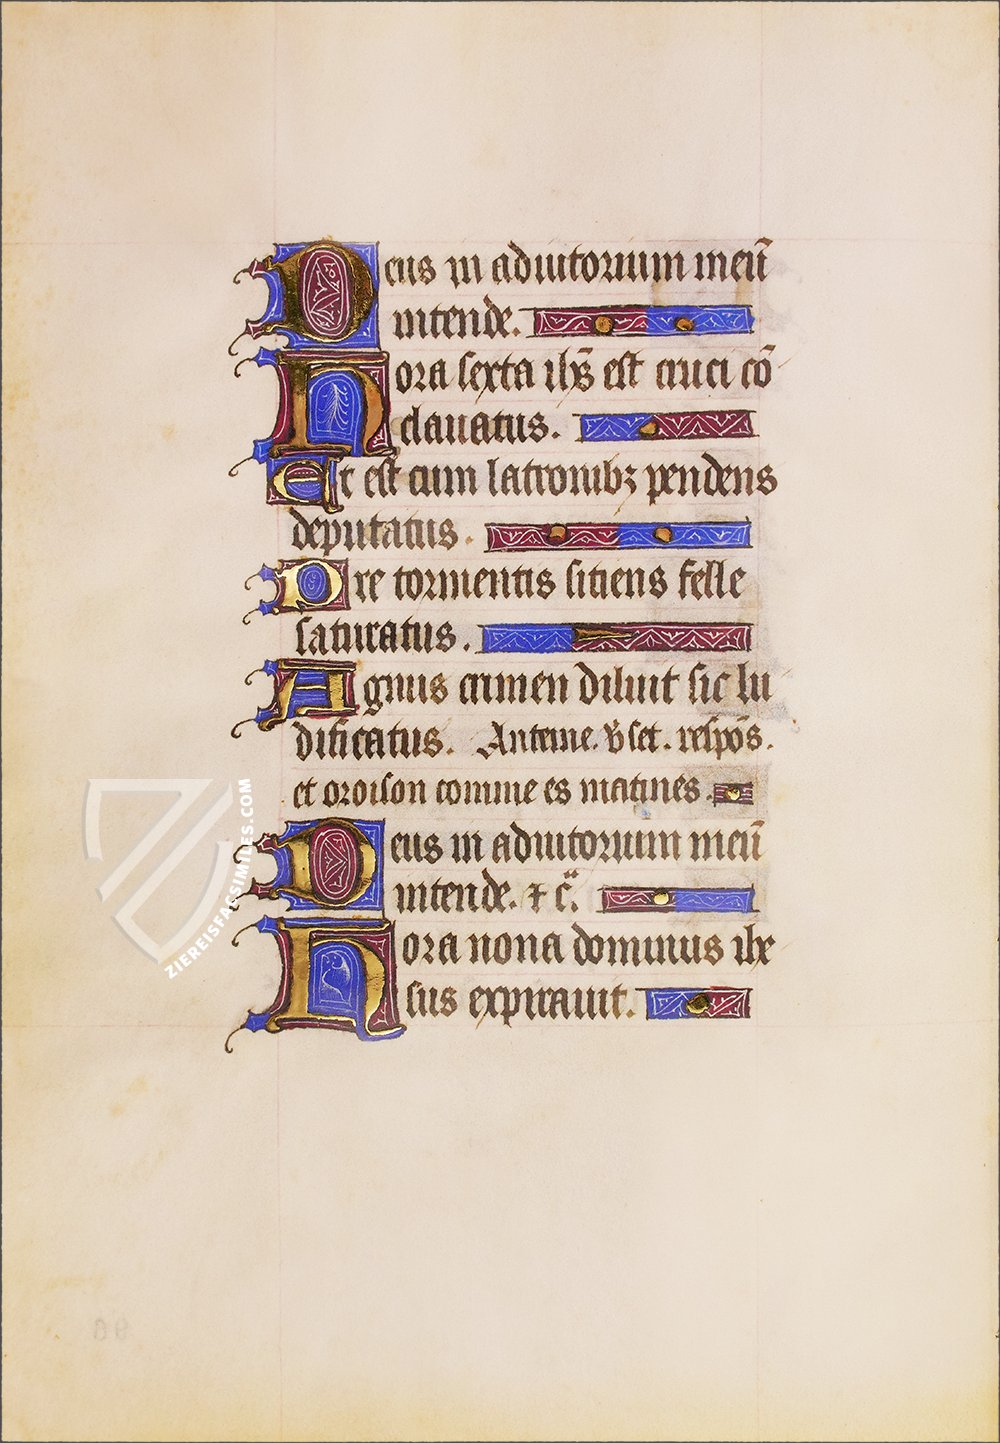 Deus in adiutorium meū
intende.
Hora sexta ihūs est cruci cō
clauatus.
Et est cum latronibꝫ pendens
deputatus.
Pre tormentis sitiens felle
saturatus.
Agnus crimen diluit sic lu
dificatus. Anteine. ꝟset. respōs.
et oroison comme es matines.
Deus in adiutorium meū
intende. ⁊ cͣ.
Hora nona dominus ihe
sus expirauit.
ZIEREISFACSIMILES.COM
96